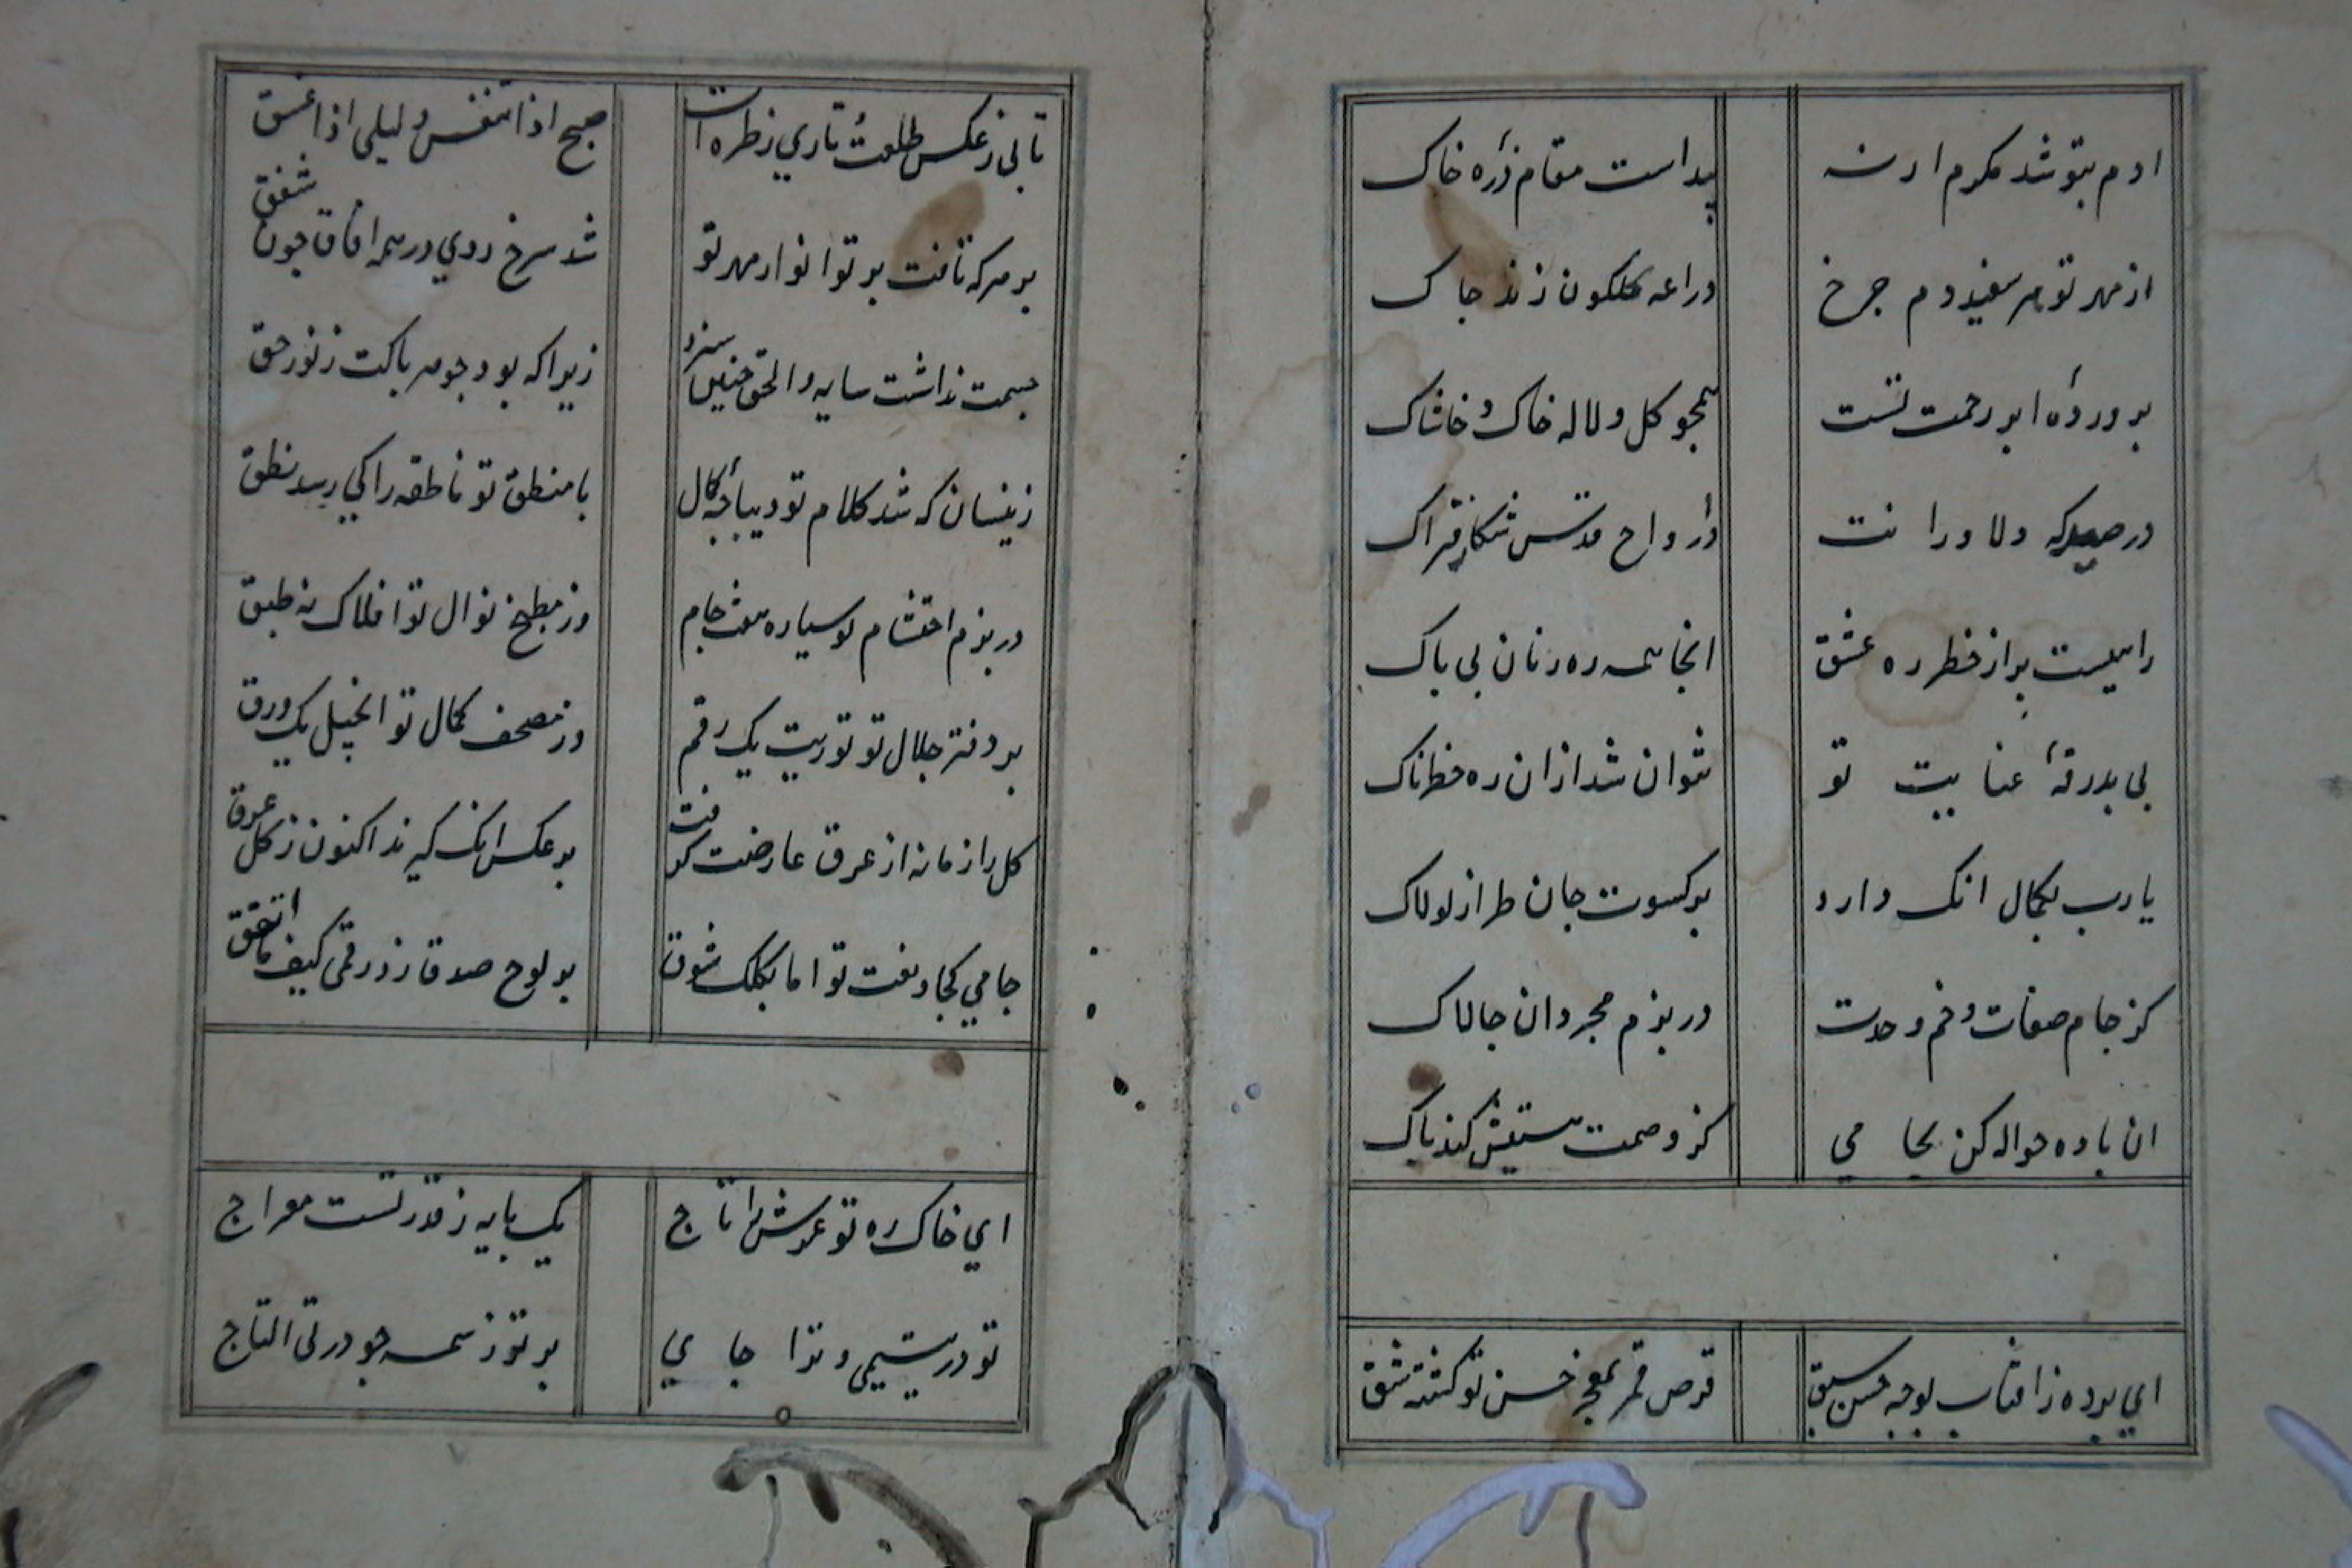 ادم بتو شد مکرم ارنه پیداست مقام ذرهٔ خاک
از مهر تو هر سفیده دم چرخ دراعه کلکون زند چاک
پروردهٔ ابر رحمت تست همچو کل و لاله خاک و خاشاک
در صیدکه ولا ورانت ارواح قدس شکار فتراک
راهیست پر از خطر ره عشق انجا همه ره زنان بی باک
بی بدرقهٔ عنایت تو نتوان شد ازان ره خطرناک
یارب بکمال انک دارد بر کسوت جان طراز لولاک
کز جام صفات و خم وحدت در بزم مجردان چالاک
ان باده حواله کن بجامی کز وصمت هستیش کند پاک
ای برده ز افتاب بوجه حسن سبق قرص قمر بمعجز حسن تو کشته شق
تابی ز عکس طلعت تاری ز طره ات صبح اذا تنفس و لیلی اذا غسق
بر هرکه تافت پرتو انوار مهر تو شد سرخ روی در همه افاق چون شفق
جسمت نداشت سایه والحق چنین سزد زیراکه بود جوهر پاکت ز نور حق
زینسان که شد کلام تو دیباجهٔ کمال با منطق تو ناطقه را کی رسد نطق
در بزم احتشام تو سیاره هفت جام وز مطبخ نوال تو افلاک نه طبق
بر دفتر جلال تو توریت یک رقم وز مصحف کمال تو انجیل یک ورق
کل را زمانه از عرق عارضت کرفت بر عکس انک کیرند اکنون ز کل عرق
جامی کجا و نعت تو اما بکلک شوق بر لوح صدق زد رقمی کیف ما اتفق
ای خاک ره تو عرش را تاج یک پایه ز قدر تست معراج
تو در یتیمی و ترا جای برتر ز همه چو درة التاج